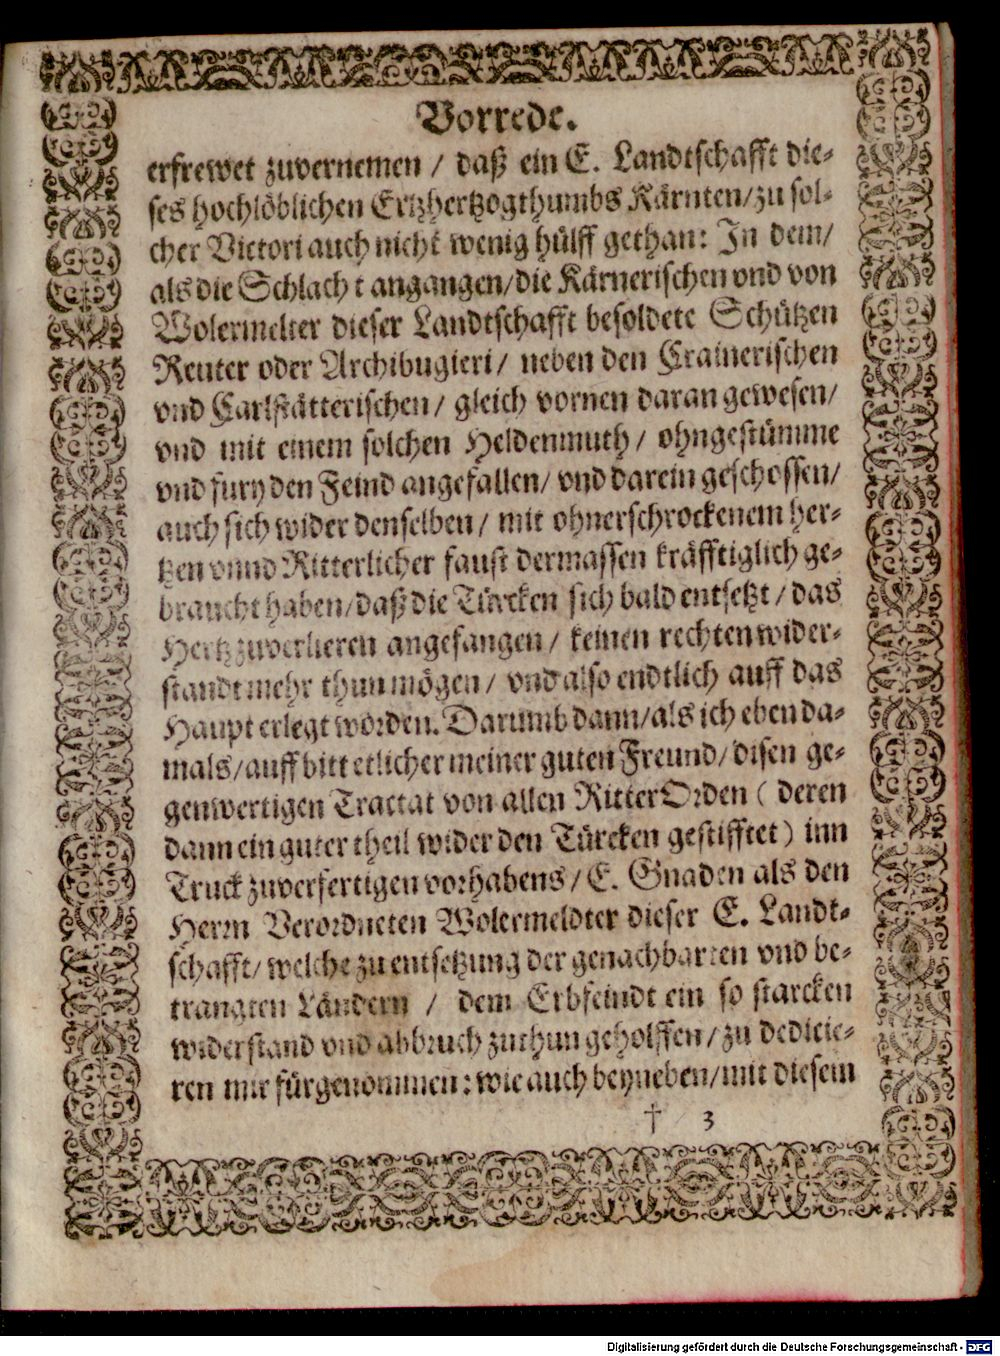 Vorrede.
erfrewet zuvernemen / daß ein E. Landtschafft die-
ses hochlöblichen Ertzhertzogthumbs Kärnten/zu sol-
cher Victori auch nicht wenig hülff gethan: In dem/
als die Schlacht angangen/die Kärnerischen vnd von
Wolermelter dieser Landtschafft besoldete Schützen
Reuter oder Archibugieri / neben den Crainerischen
vnd Carlstätterischen / gleich vornen daran gewesen/
vnd mit einem solchen Heldenmuth / ohngestümme
vnd fury den Feind angefallen/ vnd darein geschossen/
auch sich wider denselben / mit ohnerschrockenem her-
tzen vnnd Ritterlicher faust dermassen kräfftiglich ge-
braucht haben/daß die Türcken sich bald entsetzt / das
Hertz zuverlieren angefangen / keinen rechten wider-
standt mehr thun mögen / vnd also endtlich auff das
Haupt erlegt worden. Darumb dann/als ich eben da-
mals/auff bitt etlicher meiner guten Freund/ disen ge-
genwertigen Tractat von allen RitterOrden ( deren
dann ein guter theil wider den Türcken gestifftet) inn
Truck zuverfertigen vorhabens / E. Gnaden als den
Herrn Verordneten Wolermeldter dieser E. Landt-
schafft/ welche zu entsetzung der genachbarten vnd be-
trangten Ländern / dem Erbfeindt ein so starcken
widerstand vnd abbruch zuthun geholffen/zu dedicie-
ren mir fürgenommen: wie auch beyneben/mit diesem
† 3
Digitalisierung gefördert durch die Deutsche Forschungsgemeinschaft - DFG